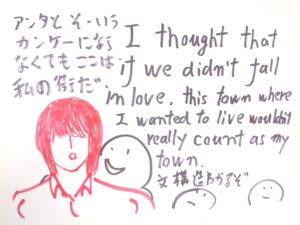 アンタとそーいう
カンケーになら
なくてもここは
私の街だ
I thought that
if we didn't fall
in love, this town where
I wanted to live wouldn't
really count as my
town.
文構造わかるぞ